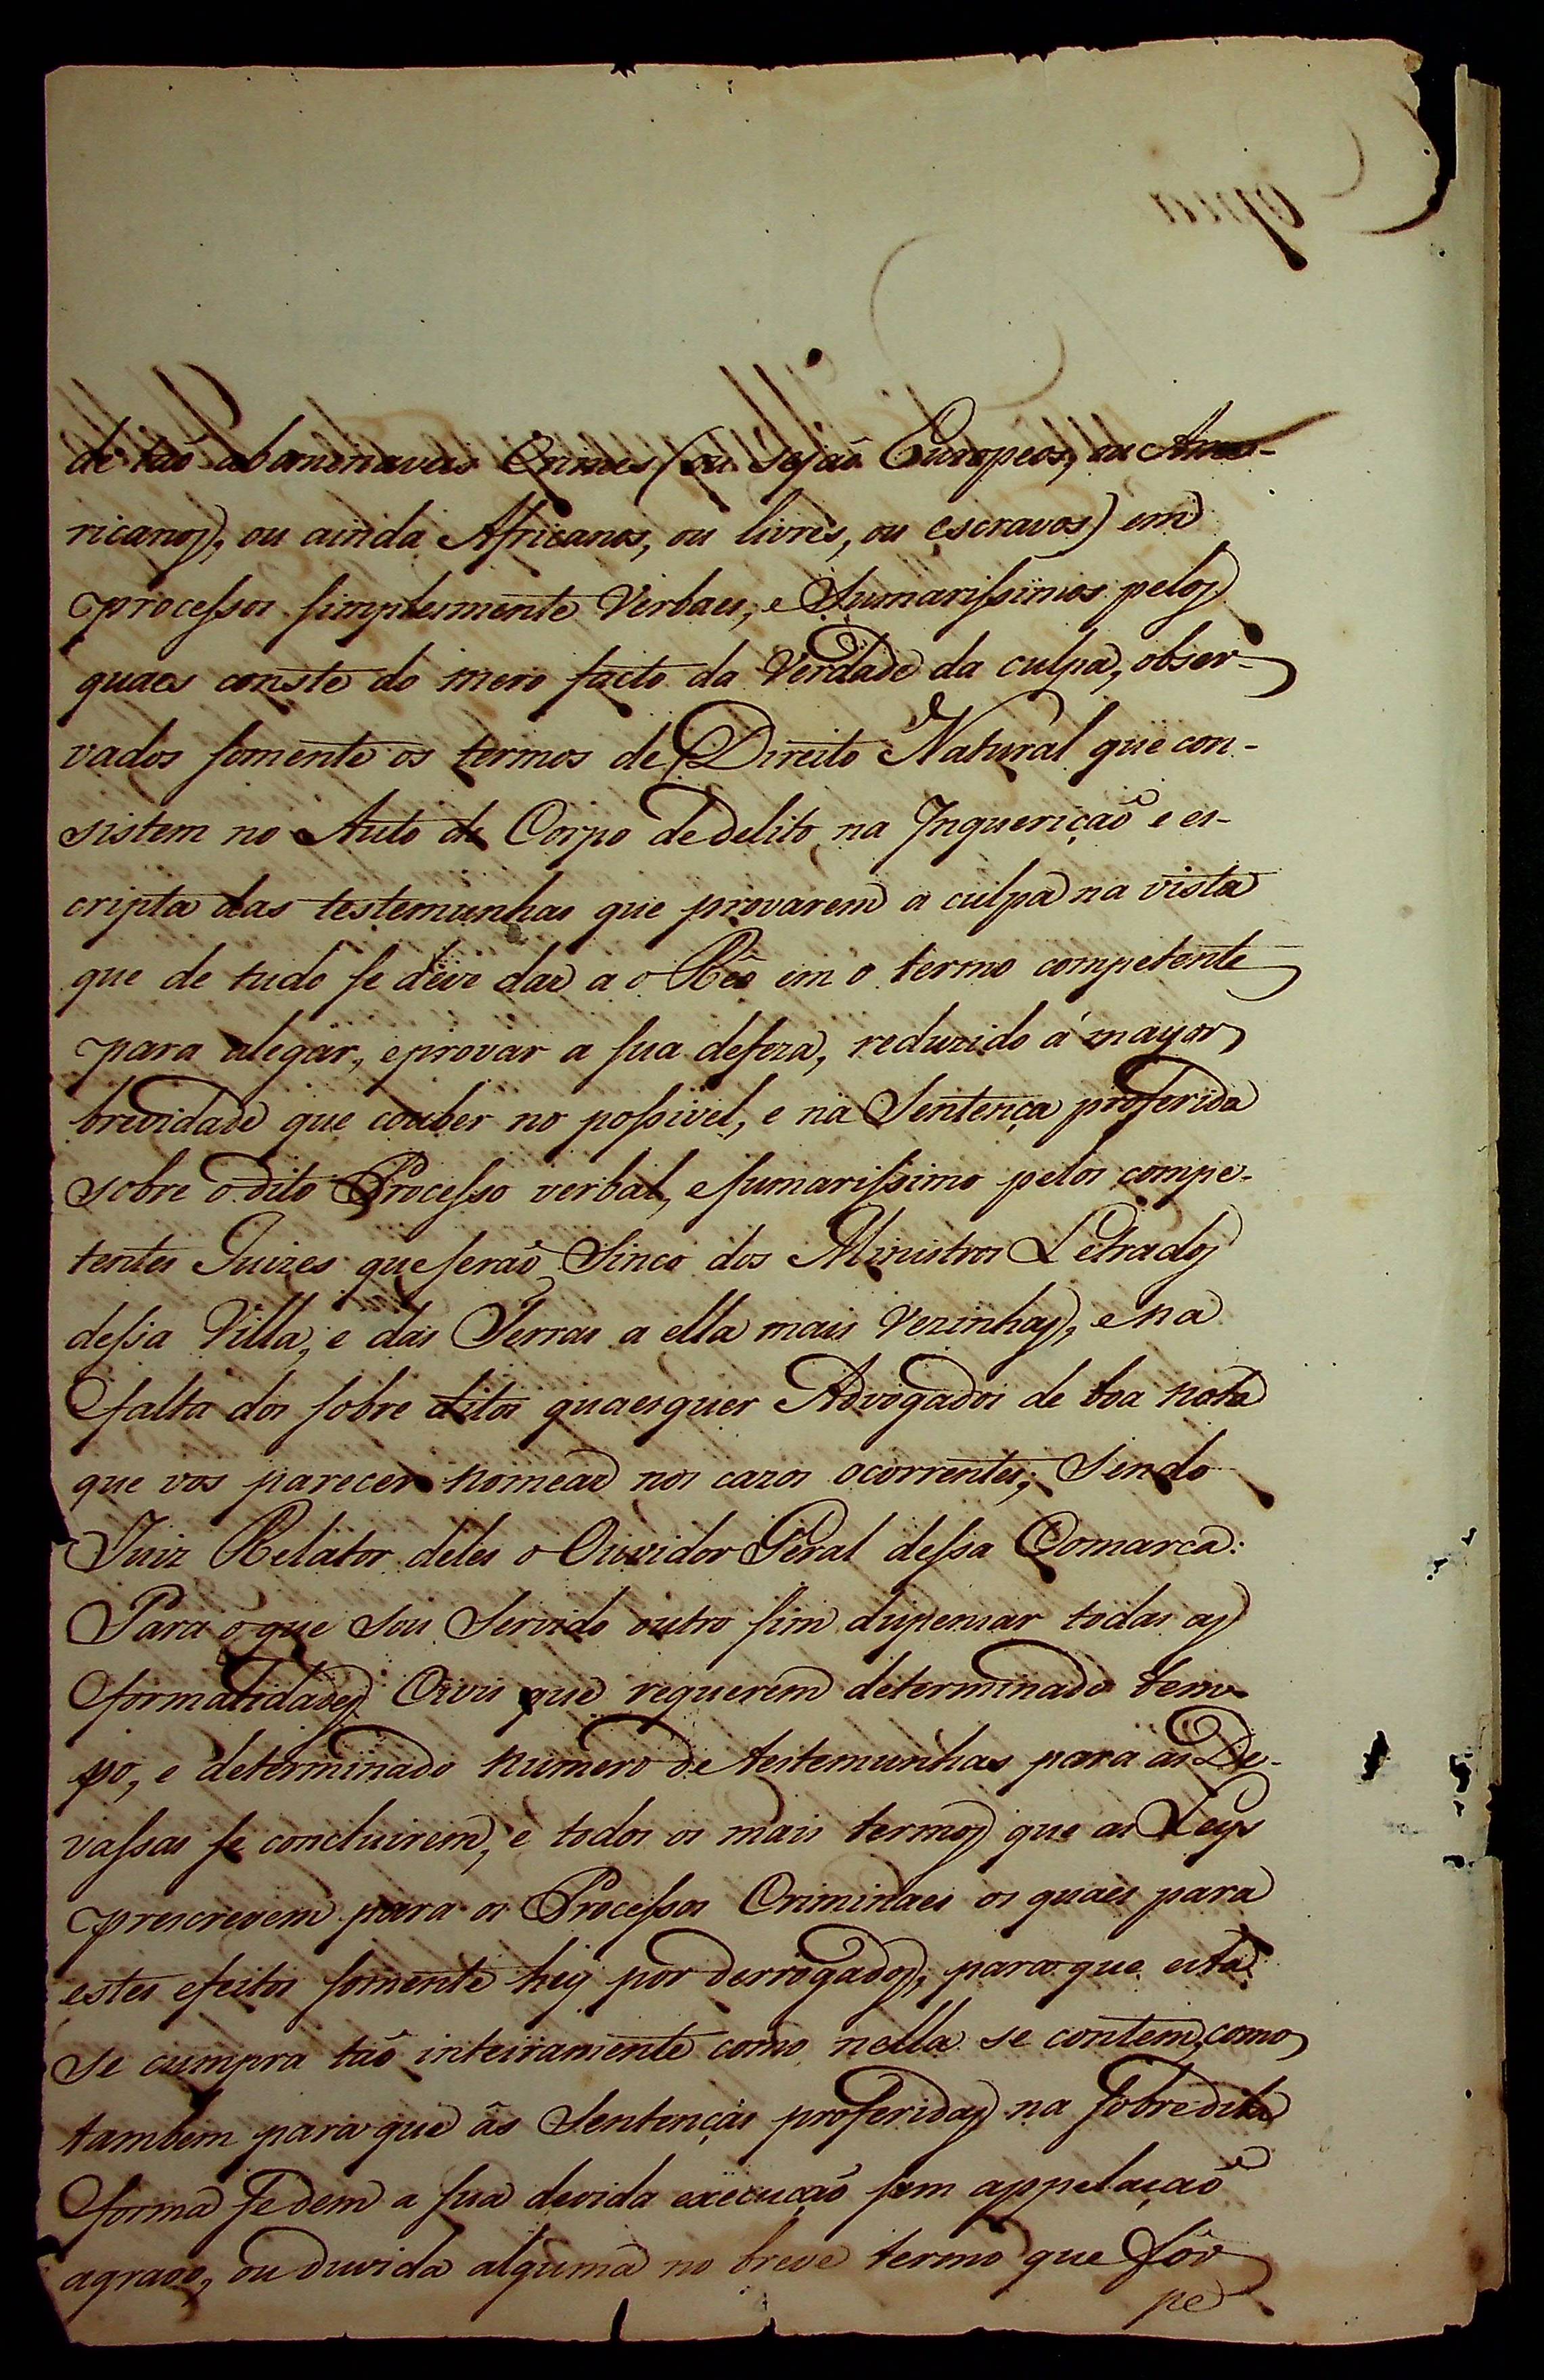 de taõ abominaveis Crimes (ou sejaõ Europeos, ou Ame-
ricanos, ou ainda Africanos, ou livres, ou escravos) em
processos simplesmente Verbaes, e Sumarissimos pelos
quaes conste do mero facto da Verdade da culpa, obser-
vados somente os termos de Direito Natural que con-
sistem no Auto de Corpo dedelito, na Inqueriçaõ e es-
cripta das testemunhas que provarem a culpa na vista
que de tudo se deve dar a o Réo em o termo competente
para alegar, e provar a sua defeza, reduzido á mayor
brevidade que couber no possivel, e na Sentença proferida
sobre o dito Processo verbal, e sumarissimo pelos compe-
tentes Juizes que seraõ Sinco dos Ministros Letrados
dessa Villa, e das Terras a ella mais Vezinhas, e na
falta dos sobre ditos quaesquer Advogados de boa nota
que vos parecer nomear nos cazos ocorrentes; Sendo
Juiz Relator deles o Ouvidor Geral dessa Comarca:
Para o que Sou Servido outro sim dispensar todas as
formalidades Civis que requerem determinado tem-
po, e determinado numero de testemunhas para as De-
vassas se concluirem, e todos os mais termos que as Leys
prescrevem para os Processos Criminaes os quaes para
estes efeitos somente hey por derrogados, para que esta
se cumpra taõ inteiramente como nella se contem, como
tambem para que as Sentenças proferidas na sobredita
forma se dem a sua devida execuçaõ sem appelaçaõ
agravo, ou duvida alguma no breve termo que fôr
pe
Copia